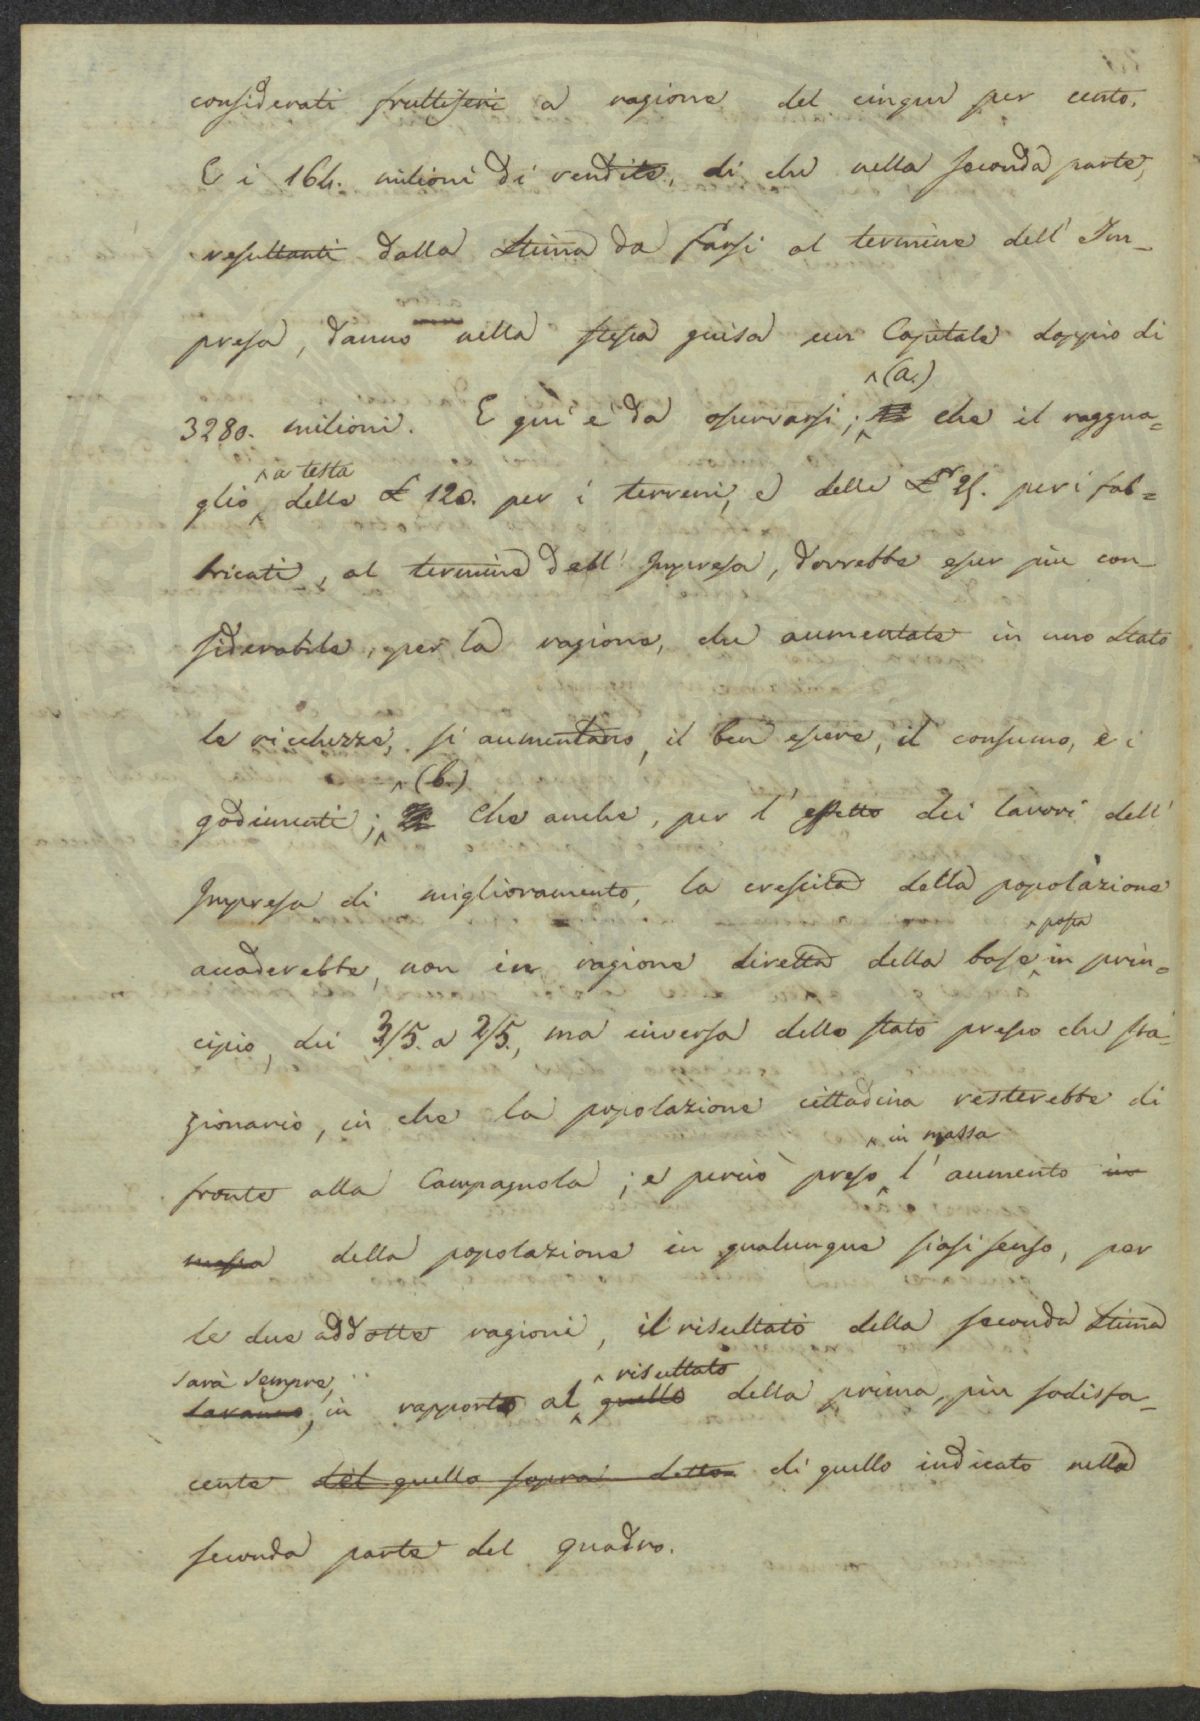 considerati fruttiferi a ragione del cinque per cento.
E i 164. milioni di rendite, di che nella seconda parte,
resultanti dalla Stima da farsi al termine dell' Im-
presa, danno nella stessa guisa un Capitale doppio di
3280. milioni. E quì è da osservarsi; (a.) che il raggua=
glio a testa delle £ 120. per i terreni, e delle £ 25. per i fab=
bricati, al termine dell' Impresa, dovrebbe esser più con-
siderabile, per la ragione, che aumentate in uno Stato
le ricchezze, si aumentano, il ben essere, il consumo, e i
godimenti; (b.) Che anche, per l' effetto dei lavori dell'
Impresa di miglioramento, la crescita della popolazione
accaderebbe, non in ragione diretta della base posta in prin=
cipio, dei 3/5. a 2/5., ma inversa dello stato presso che sta-
zionario, in che la popolazione cittadina resterebbe di
fronte alla Campagnola; e perciò preso in massa l' aumento in
massa della popolazione in qualunque siasi senso, per
le due addotte ragioni, il risultato della seconda Stima
sarà sempre, saranno, in rapporto al risultato quello della prima, più sodisfa-
cente del quello sopra detto di quello indicato nella
seconda parte del quadro.